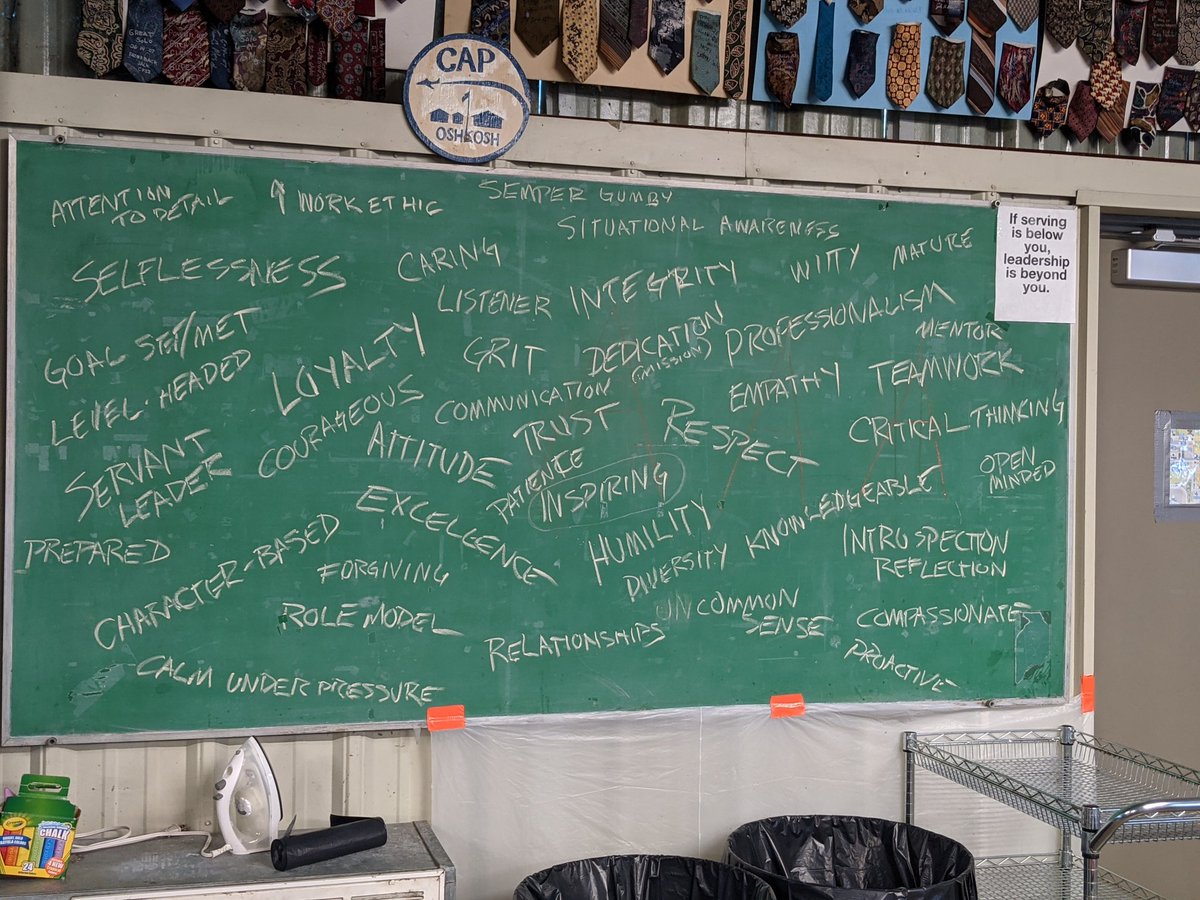 CAP
OSHKOSH
ATTENTION
TO DETAIL
↑ WORK ETHIC
SEMPER GUMBY
SITUATIONAL AWARENESS
If serving
is below
you,
leadership
is beyond
you.
SELFLESSNESS
CARING
LISTENER
INTEGRITY
WITTY
MATURE
GOAL SET/MET
LOYALTY
GRIT
DEDICATION
(MISSION)
PROFESSIONALISM
MENTOR
LEVEL-HEADED
COURAGEOUS
COMMUNICATION
EMPATHY
TEAMWORK
SERVANT
LEADER
ATTITUDE
TRUST
RESPECT
CRITICAL THINKING
PATIENCE
INSPIRING
OPEN
MINDED
PREPARED
EXCELLENCE
HUMILITY
KNOWLEDGEABLE
CHARACTER-BASED
FORGIVING
DIVERSITY
INTROSPECTION
REFLECTION
ROLE MODEL
RELATIONSHIPS
UNCOMMON
SENSE
COMPASSIONATE
CALM UNDER PRESSURE
PROACTIVE
Crayola
CHALK
24